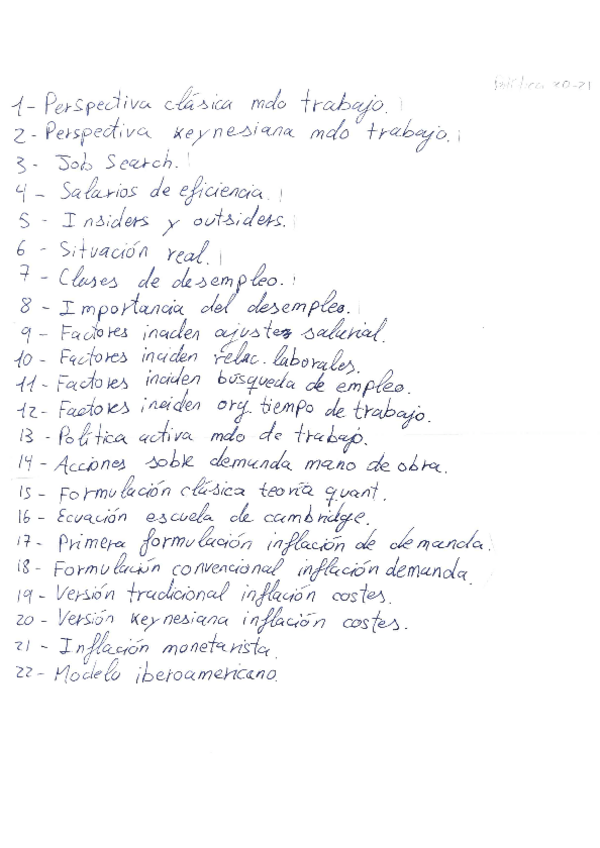 Política 20-21
1- Perspectiva clásica mdo trabajo.
2- Perspectiva keynesiana mdo trabajo.
3- Job Search.
4- Salarios de eficiencia.
5- Insiders y outsiders.
6- Situación real.
7- Clases de desempleo.
8- Importancia del desempleo.
9- Factores inciden ajustes salarial.
10- Factores inciden relac. laborales.
11- Factores inciden búsqueda de empleo.
12- Factores inciden org. tiempo de trabajo.
13- Política activa mdo de trabajo.
14- Acciones sobre demanda mano de obra.
15- Formulación clásica teoría quant.
16- Ecuación escuela de cambridge.
17- Primera formulación inflación de demanda.
18- Formulación convencional inflación demanda.
19- Versión tradicional inflación costes.
20- Versión keynesiana inflación costes.
21- Inflación monetarista.
22- Modelo iberoamericano.